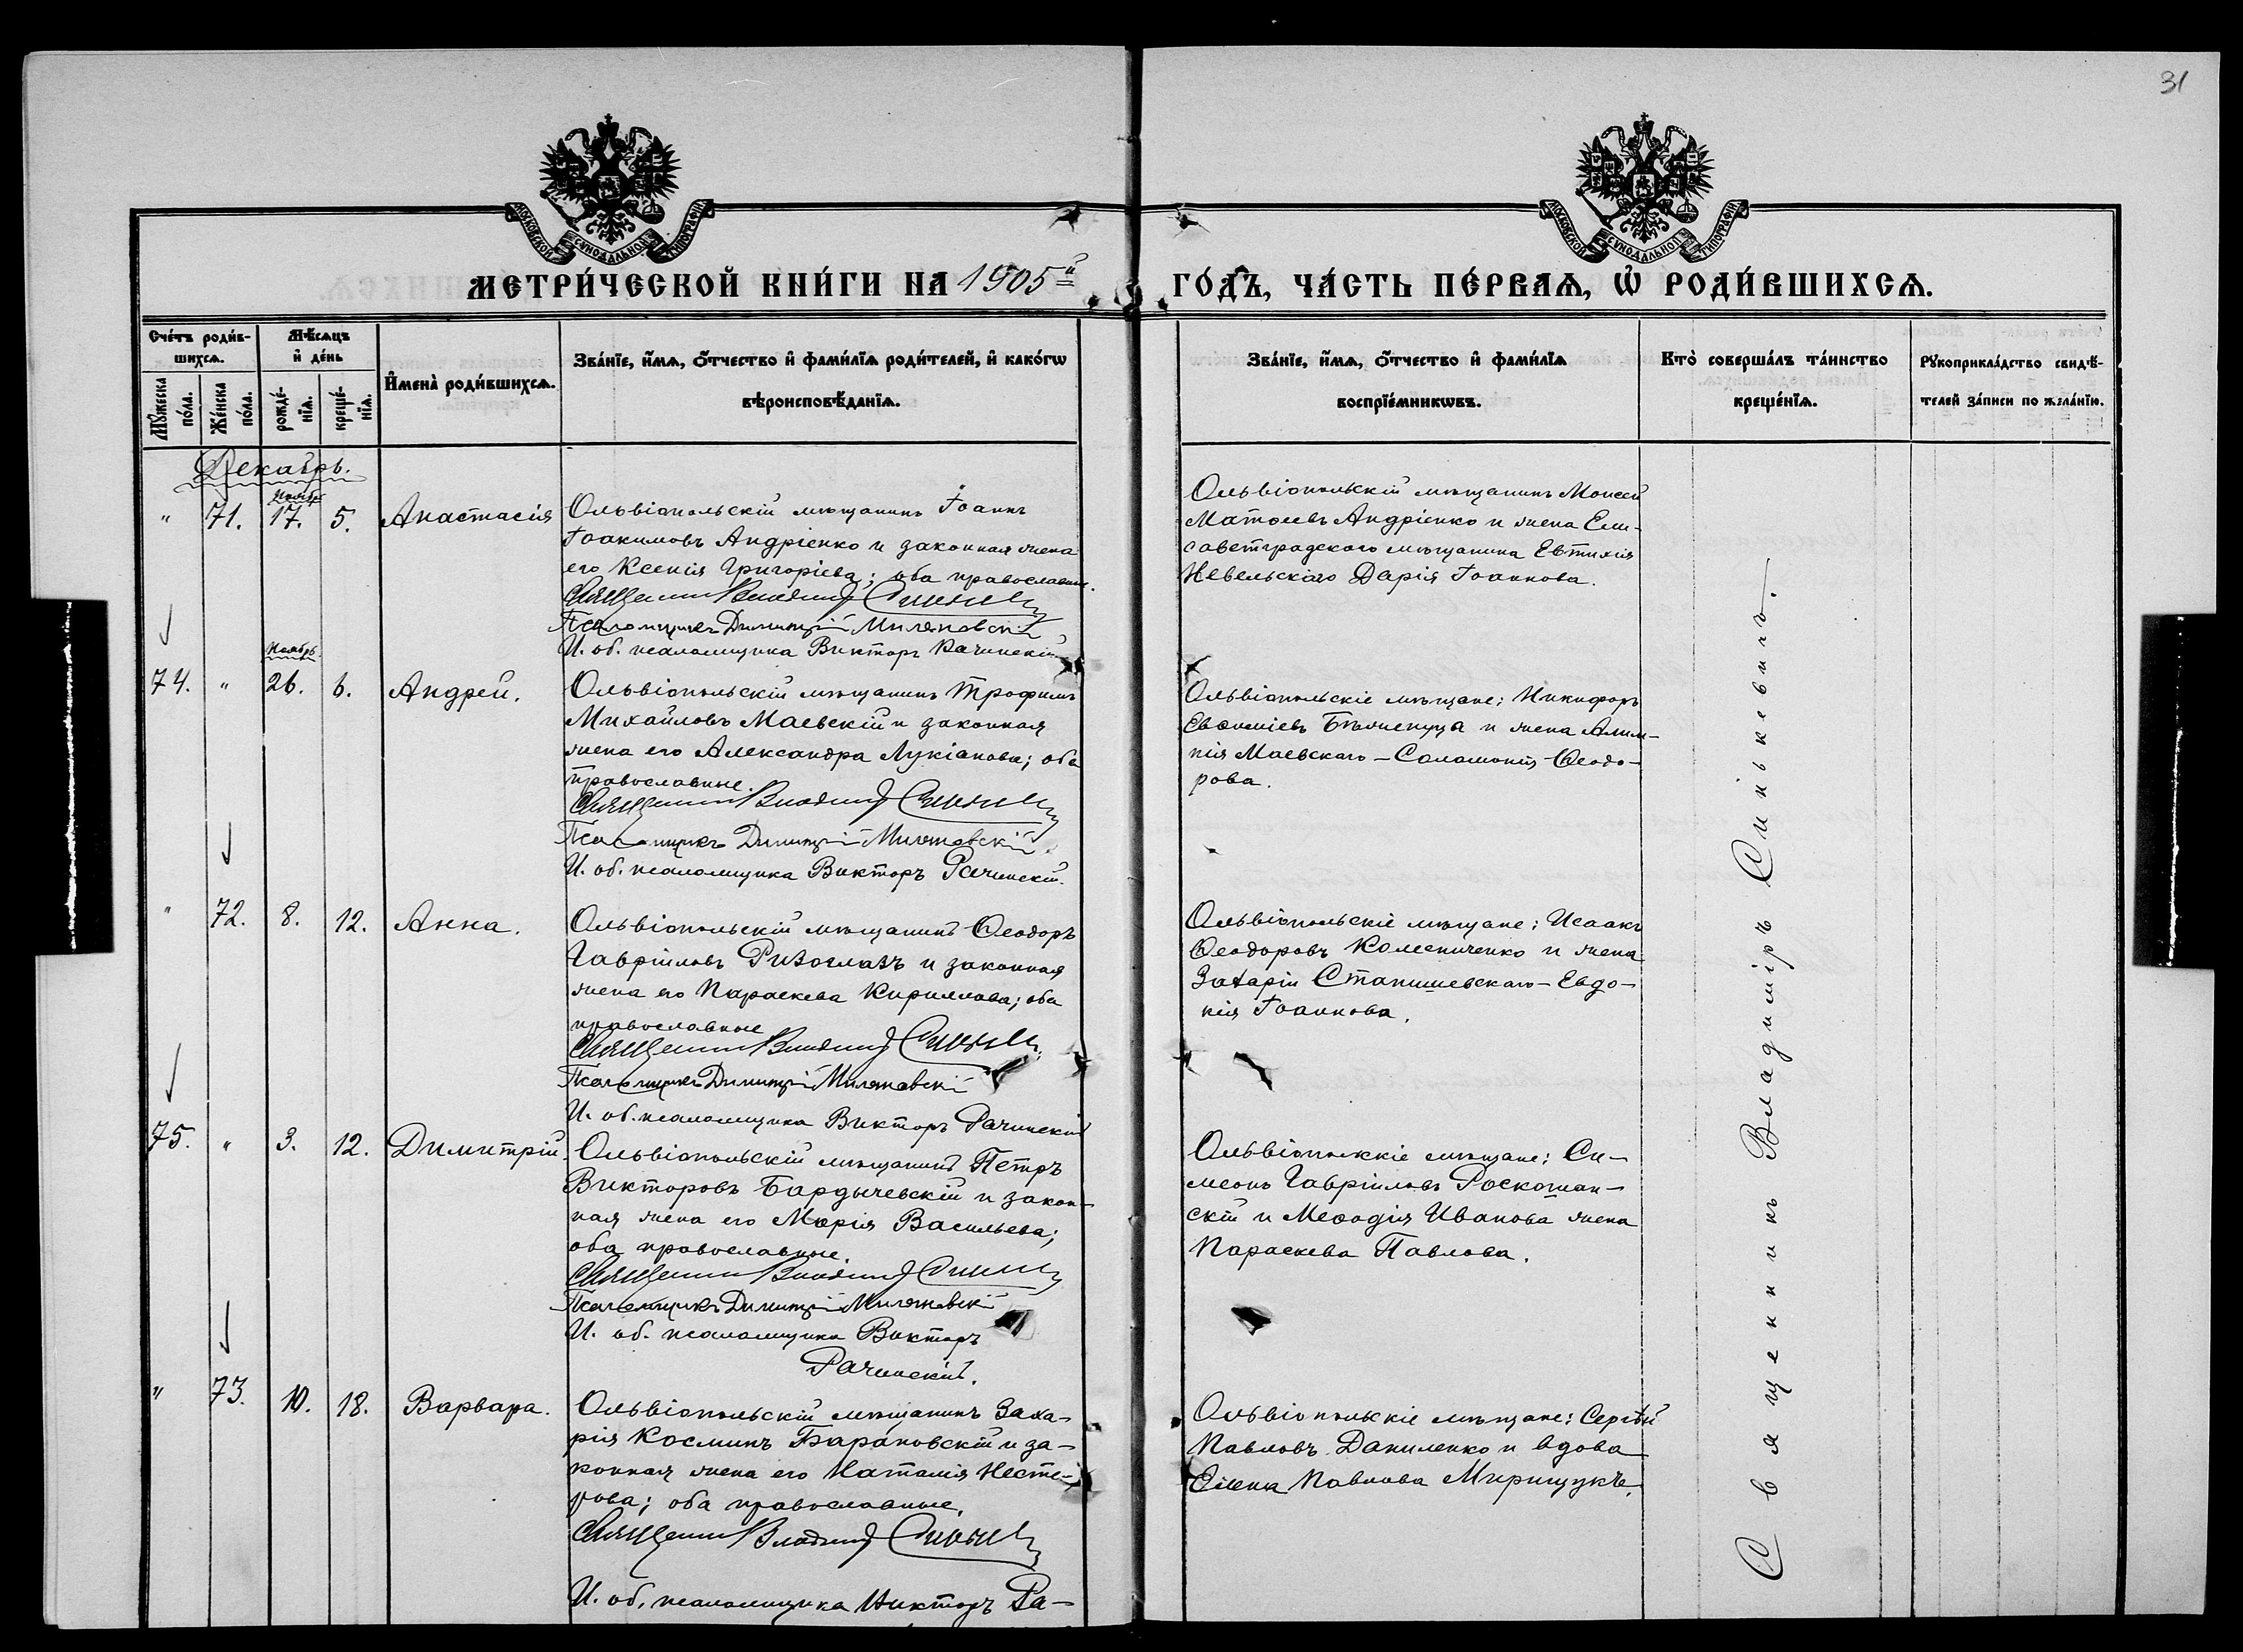 31
МОСКОВСКОЙ СУНОДАЛЬНОЙ ТИПОГРАФІИ
МОСКОВСКОЙ СУНОДАЛЬНОЙ ТИПОГРАФІИ
МЕТРИ́ЧЕСКОЙ КНИ́ГИ НА 1905й ГО́ДЪ, ЧА́СТЬ ПЕ́РВАѦ, Ѡ РОДИ́ВШИХСѦ.
Сче́тъ роди́в-
шихсѧ.
Мꙋ́жеска по́ла.
Же́нска по́ла.
Мѣ́сѧцъ
и҆ де́нь
рожде́-нїѧ.
креще́-нїѧ.
И҆мена̀ роди́вшихсѧ.
Зва́нїе, и҆́мѧ, ѻ҆́тчество и҆ фами́лїѧ роди́телей, и҆ како́гѡ
вѣроисповѣ́данїѧ.
Зва́нїе, и҆́мѧ, ѻ҆́тчество и҆ фами́лїѧ
воспрїе́мникѡвъ.
Кто̀ соверша́лъ та́инство
креще́нїѧ.
Рꙋкоприкла́дство свидѣ́-
телей за́писи по жела́нїю.
Декабрь.
Ноябр
" 71. 17. 5. Анастасія
Ольвіопольскій мѣщанинъ Іоаннъ
Іоакимовъ Андріенко и законная жена
его Ксенія Григоріева; оба православные.
Священник Владимір
Псаломщикъ Димитрій Миляновскій
И. об. псаломщика Викторъ Рачинскій
Ольвіопольскій мѣщанинъ Моисей
Матѳеевъ Андріенко и жена Ели-
саветградского мѣщанина Евтихія
Невельскаго Дарія Іоаннова.
Ноябрь.
74. " 26. 6. Андрей.
Ольвіопольскій мѣщанинъ Трофимъ
Михайловъ Маевскій и законная
жена его Александра Лукіанова; оба
православные.
Священник Владимір
Псаломщикъ Димитрій Миляновскій
И. об. псаломщика Викторъ Рачинскій.
Ольвіопольскіе мѣщане: Никифоръ
Евѳиміевъ и жена Алим-
пія Маевскаго – Саломонія Ѳеодо-
рова.
" 72. 8. 12. Анна.
Ольвіопольскій мѣщанинъ Ѳеодоръ
Гавріиловъ Ризоглазъ и законная
жена его Параскева Кириллова; оба
православные
Священник Владимір
Псаломщикъ Димитрій Миляновскій
И. об. псаломщика Викторъ Рачинскій
Ольвіопольскіе мѣщане: Исаакъ
Ѳеодоровъ Колесниченко и жена
Захарія Станишевскаго – Евдо-
кія Іоаннова.
75. " 3. 12. Димитрій.
Ольвіопольскій мѣщанинъ Петръ
Викторовъ Бардычевскій и закон-
ная жена его Марія Васильева;
оба православные.
Священник Владимір
Псаломщикъ Димитрій Миляновскій
И. об. псаломщика Викторъ
Рачинскій.
Ольвіопольскіе мѣщане: Си-
меонъ Гавріиловъ Роскошан-
скій и Меѳодія Иванова жена
Параскева Павлова.
" 73. 10. 18. Варвара.
Ольвіопольскій мѣщанинъ Заха-
рія Косминъ Барановскій и за-
конная жена его Наталія Несте-
рова; оба православные.
Священник Владимір
И. об. псаломщика Викторъ Ра-
Ольвіопольскіе мѣщане: Сергѣй
Павловъ Даниленко и вдова
Елена Павлова Мирищукъ.
Священникъ Владиміръ Синькевичъ.